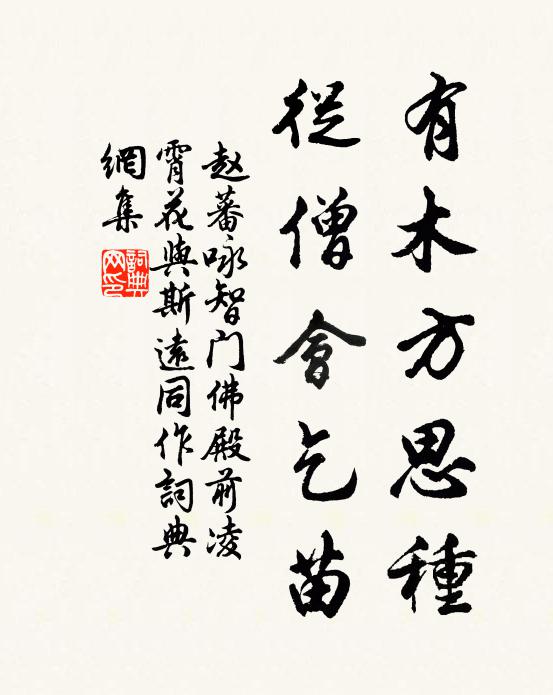 有木方思種
從僧會乞苗
赵蕃咏智门佛殿前凌
霄花與斯遠同作詞典
網集
詞典
网印